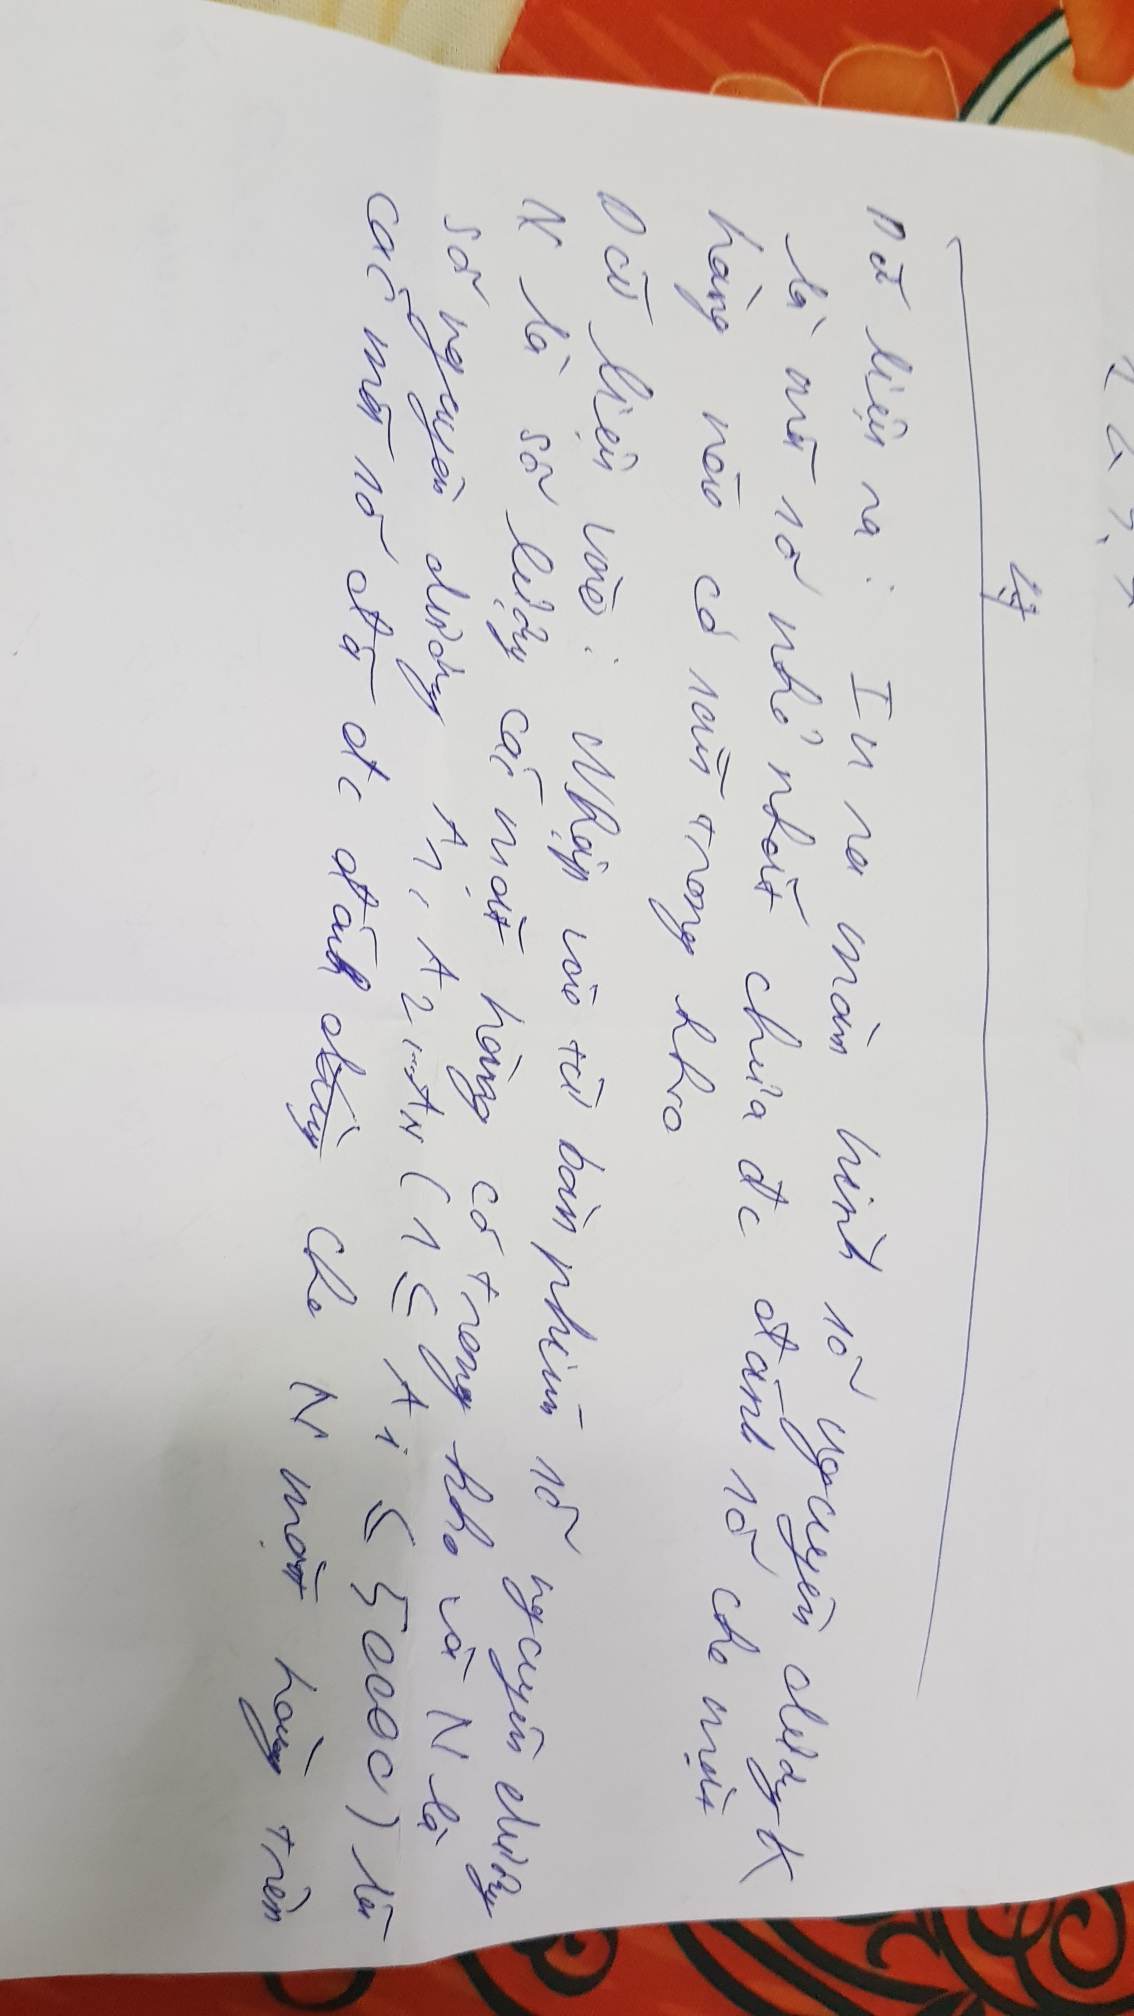 Dữ liệu ra: In ra màn hình số nguyên dương K
là mã số nhỏ nhất chưa đc đánh số cho mặt
hàng nào có sẵn trong kho
Dữ liệu vào: Nhập vào từ bàn phím số nguyên dương
N là số lượng các mặt hàng có trong kho và N là
số nguyên dương A1, A2,...AN (1 ≤ Ai ≤ 50000) là
các mã số đã đc đánh cho N mặt hàng trên